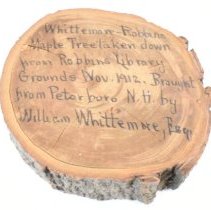 Whittemore-Robbins
Maple Tree taken down
from Robbins Library
Grounds Nov. 1912. Brought
from Peterboro N.H. by
William Whittemore, Esqr